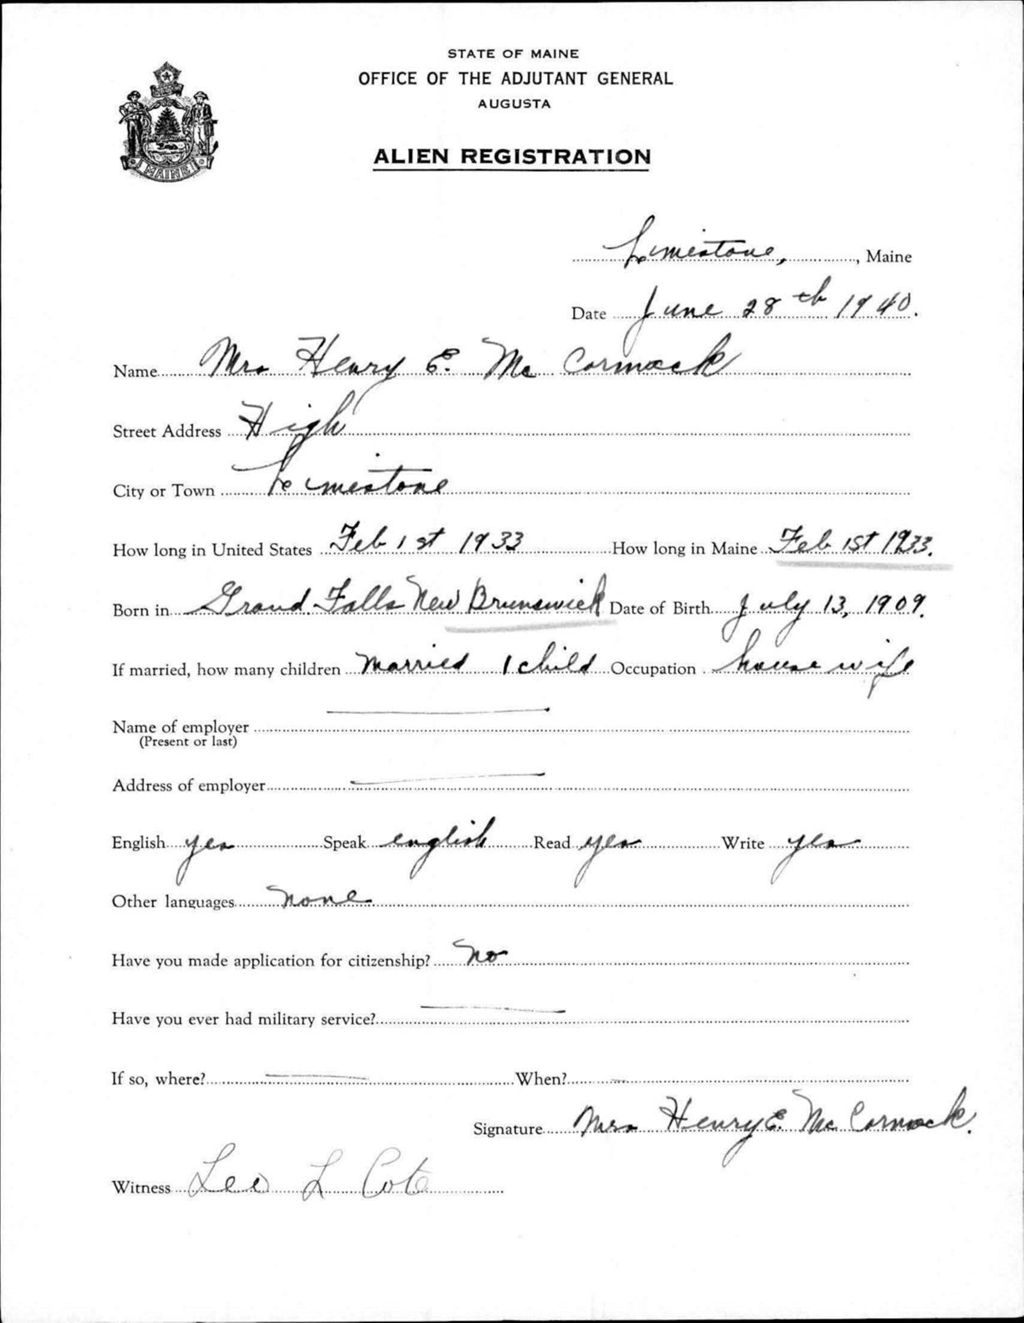 STATE OF MAINE
OFFICE OF THE ADJUTANT GENERAL
AUGUSTA
ALIEN REGISTRATION
MAINE
Limestone, , Maine
Date June 28th 1940.
Name Mrs Henry E. Mc Cormack
Street Address High
City or Town Limestone
How long in United States Feb 1st 1933 How long in Maine Feb 1st 1933.
Born in Grand Falls New Brunswick Date of Birth July 13, 1909.
If married, how many children Married 1 child Occupation house wife
Name of employer
(Present or last)
Address of employer
English yes Speak english Read yes Write yes
Other languages none
Have you made application for citizenship? No
Have you ever had military service?
If so, where? When?
Signature Mrs Henry E. Mc Cormack.
Witness Leo L Cote